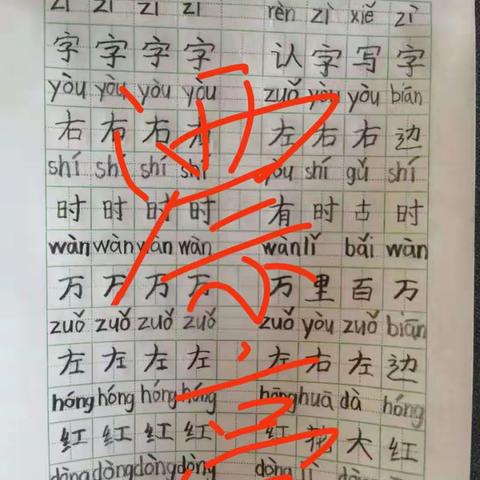 zì zì zì zì rèn zì xiě zì
字 字 字 字 认 字 写 字
yòu yòu yòu yòu zuǒ yòu yòu biān
右 右 右 右 左 右 右 边
shí shí shí shí yòu shí gǔ shí
时 时 时 时 有 时 古 时
wàn wàn wàn wàn wàn lǐ bǎi wàn
万 万 万 万 万 里 百 万
zuǒ zuǒ zuǒ zuǒ zuǒ yòu zuǒ biān
左 左 左 左 左 右 左 边
hóng hóng hóng hóng hóng huā dà hóng
红 红 红 红 红 花 大 红
dòng dòng dòng dòng dòng